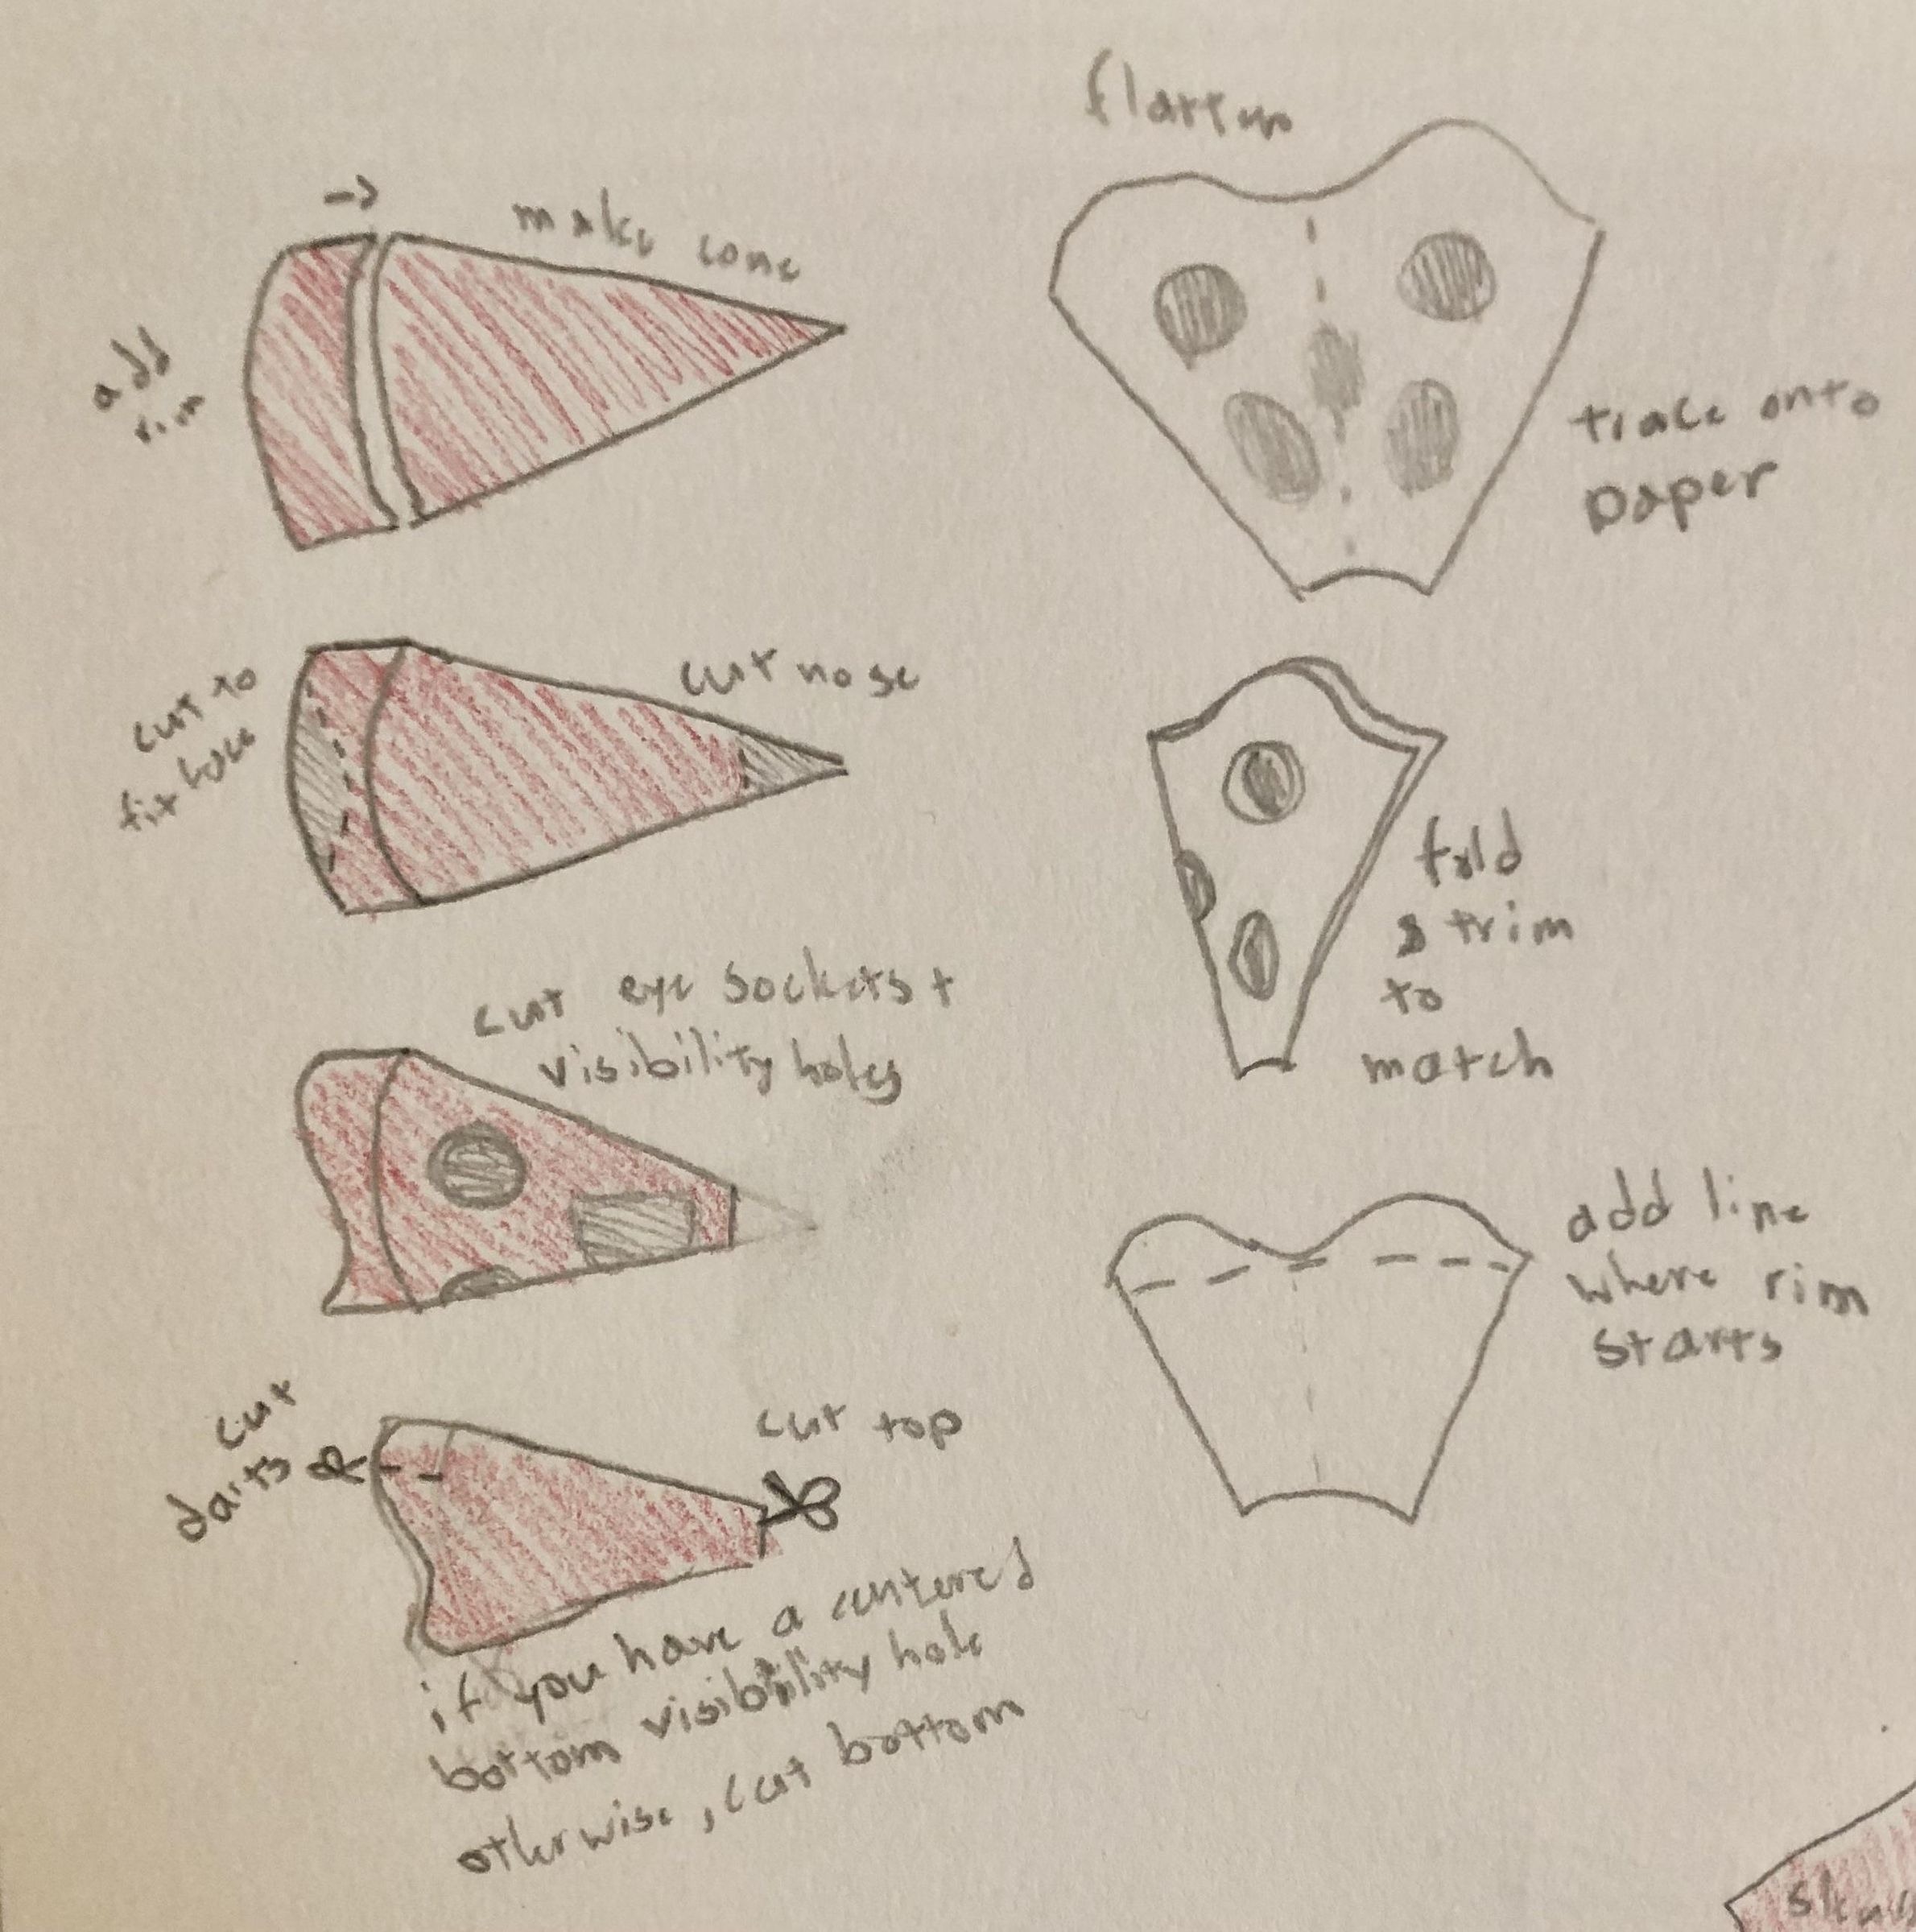 ->
make cone
add
rim
cut to
fit face
cut nose
cut eye sockets +
visibility holes
cut
darts
cut top
if you have a centered
bottom visibility hole
otherwise, cut bottom
flatten
trace onto
paper
fold
& trim
to
match
add line
where rim
starts